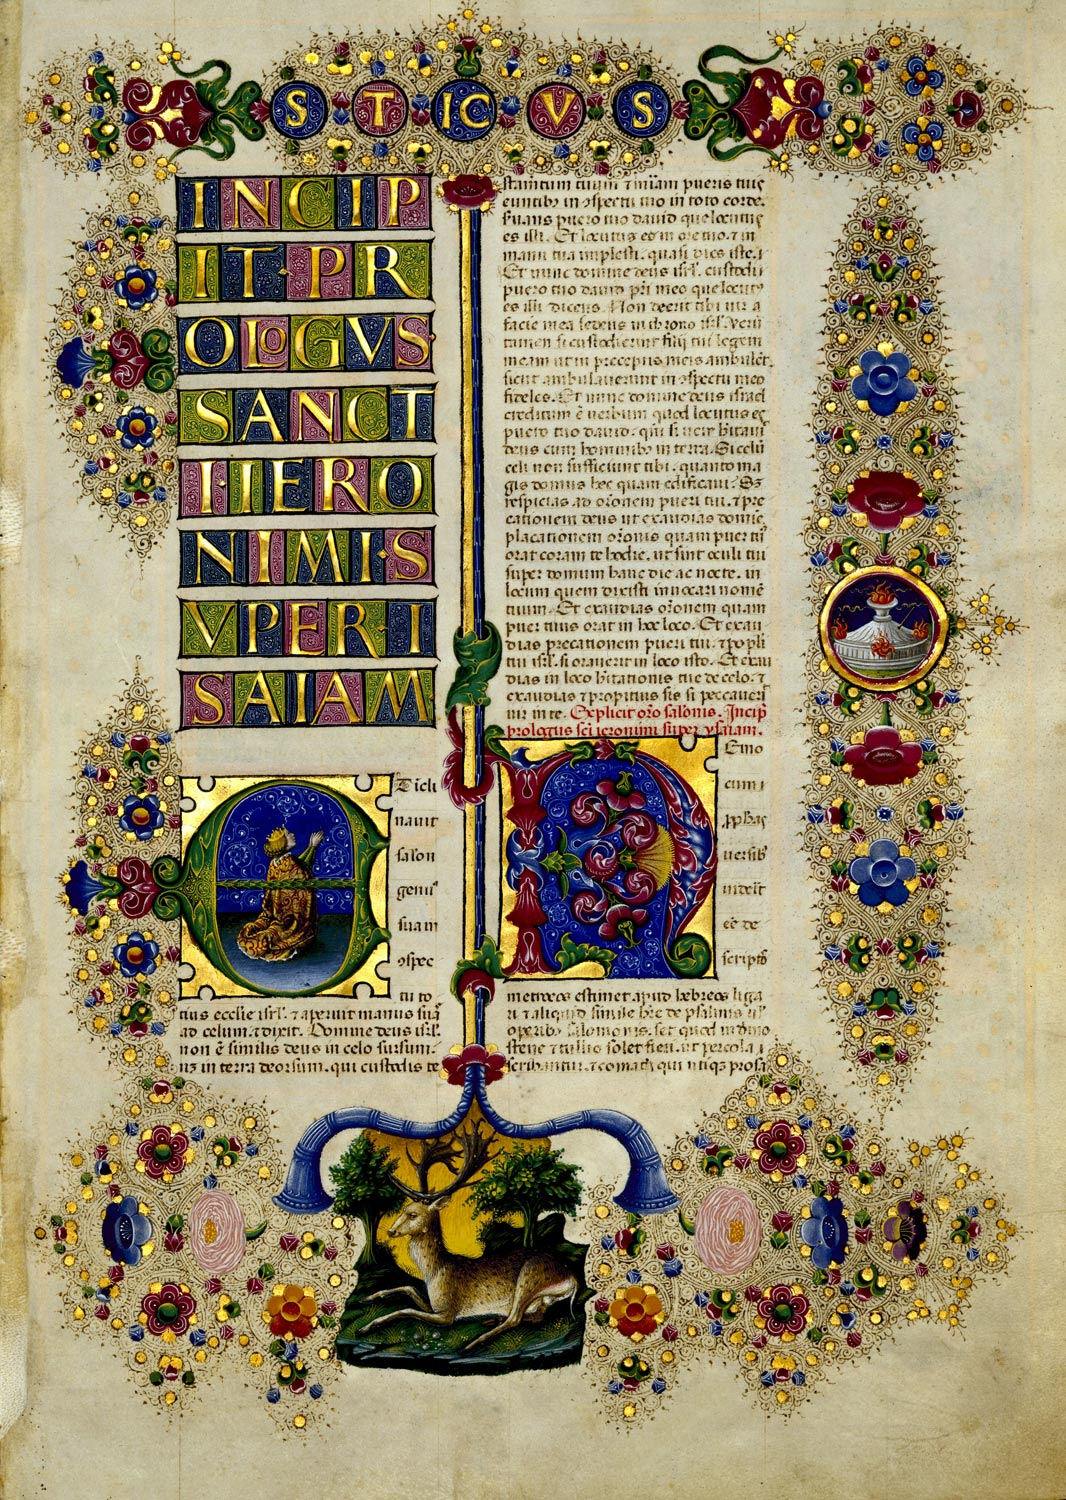 STICVS
INCIP
IT·PR
OLOGVS
SANCT
I·HERO
NIMI·S
VPER·I
SAIAM
īcli
nauit
salon
genu⁹
sua in
ↄspec
tu to
tius ecclie isrl. ⁊ aperuit manus suā
ad celum. ⁊ dixit. Domine deus isrl.
non ē similis deus in celo sursum.
nꝫ in terra deorsum. qui custodis te
stamtum tuum ⁊ mīam pueris tuis
euntibꝫ in ↄspectu tuo in toto corde.
seruans puero tuo dauid que locutus
es illi. Et locutus es in ore tuo. ⁊ in
manu tua implesti. quasi dies iste.
Et nunc domine deus isrl. custodi
puero tuo dauid pri meo que locutꝰ
es illi dicens. Non deerit tibi uir a
facie mea sedens in throno isrl. Veru
tamen si custodierint filij tui legem
meam ut in preceptis meis ambulet.
sicut ambulauerunt in ↄspectu meo
fideles. Et nunc domine deus israel
creditum ē uerbum quod locutus es
puero tuo dauid. qui si uere hitaui
deus cum hominibꝫ in terra. Si celū
celi non sufficiunt tibi. quanto ma
gis domus hec quam edificaui. Sꝫ
respicias ad orōnem pueri tui. ⁊ pre
cationem deus ut exaudias domie
placationem orōnis quam puer tuꝰ
orat coram te hodie. ut sint oculi tui
super domum hanc die ac nocte. in
locum quem dixisti inuocari nomē
tuum. Et exaudias orōnem quam
puer tuus orat in hoc loco. Et exau
dias precationem pueri tui. ⁊ popli
tui isrl. si orauerit in loco isto. Et exau
dias in loco hitationis tue de celo. ⁊
exaudias ⁊ propitius sis si peccaueri
uir in te. Explicit orō salōnis. Incip
prologus sci ieronimi super ysaiam.
N Emo
cum
ꝓphās
uersibꝫ
uiderit
eē de
scriptos
metrǣos estimet apud hebreos liga
ri ⁊ aliquid simile hre de psalmis ut
operibꝫ salomonis. set quod in demo
stene ⁊ tullio solet fieri. ut per cola
scribantur. ⁊ comata qui utiqꝫ prosa